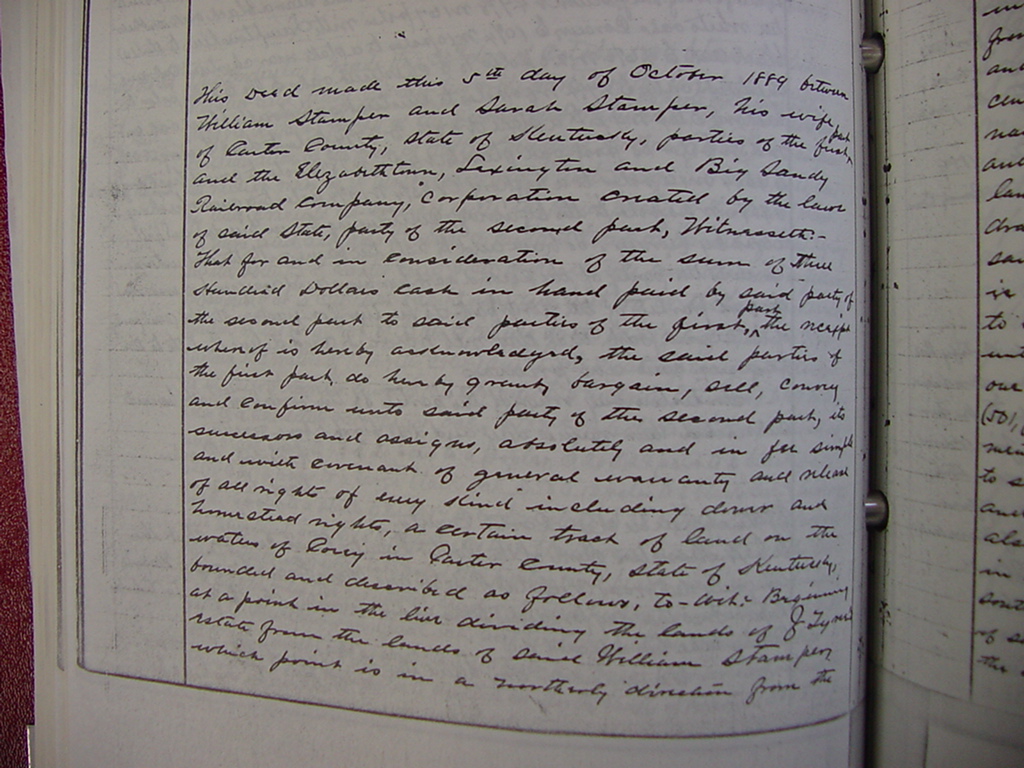 This Deed made this 5th day of October 1889 between
William Stamper and Sarah Stamper, his wife,
of Carter County, State of Kentucky, parties of the first part,
and the Elizabethtown, Lexington and Big Sandy
Railroad Company, Corporation created by the laws
of said State, party of the second part, Witnesseth:-
That for and in consideration of the sum of three
Hundred Dollars cash in hand paid by said party of
the second part to said parties of the first part, the receipt
whereof is hereby acknowledged, the said parties of
the first part do hereby grant, bargain, sell, convey
and confirm unto said party of the second part, its
successors and assigns, absolutely and in fee simple
and with covenant of general warranty and release
of all rights of every kind including dower and
homestead rights, a certain tract of land on the
waters of in Carter County, State of Kentucky,
bounded and described as follows, to-wit: Beginning
at a point in the line dividing the lands of J
estate from the lands of said William Stamper,
which point is in a northerly direction from the
in
from
and
cen
na
and
lan
dra
san
is
to
unt
our
(501,
men
to s
and
also
in
sout
of s
the